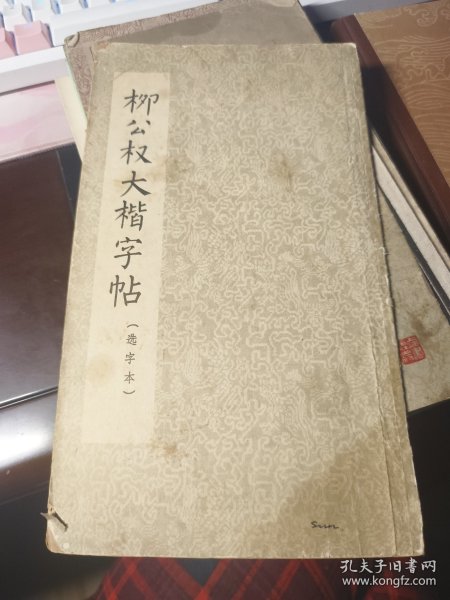 柳公权大楷字帖
（选字本）
Sun
孔夫子旧书网
www.kongfz.com